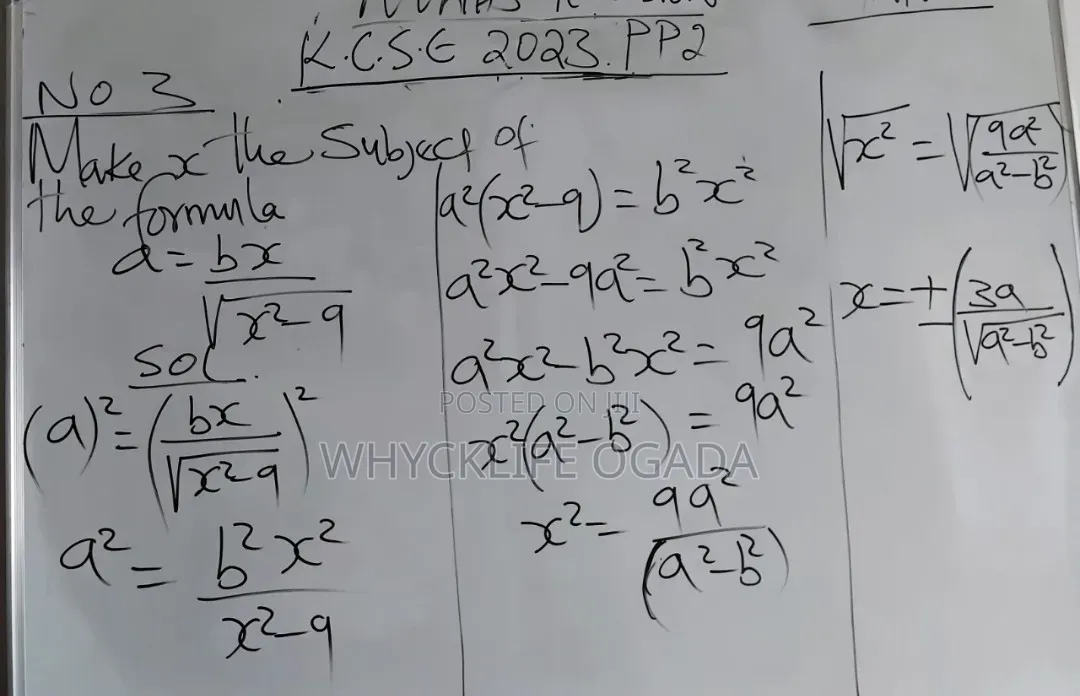 K.C.S.E 2023. PP2
No 3
Make x the Subject of
the formula
a = bx / √(x² - 9)
Sol.
(a)² = (bx / √(x² - 9))²
a² = b²x² / (x² - 9)
a²(x² - 9) = b²x²
a²x² - 9a² = b²x²
a²x² - b²x² = 9a²
x²(a² - b²) = 9a²
x² = 9a² / (a² - b²)
√x² = √(9a² / (a² - b²))
x = ± (3a / √(a² - b²))
POSTED ON JIJI
WHYCKLIFE OGADA